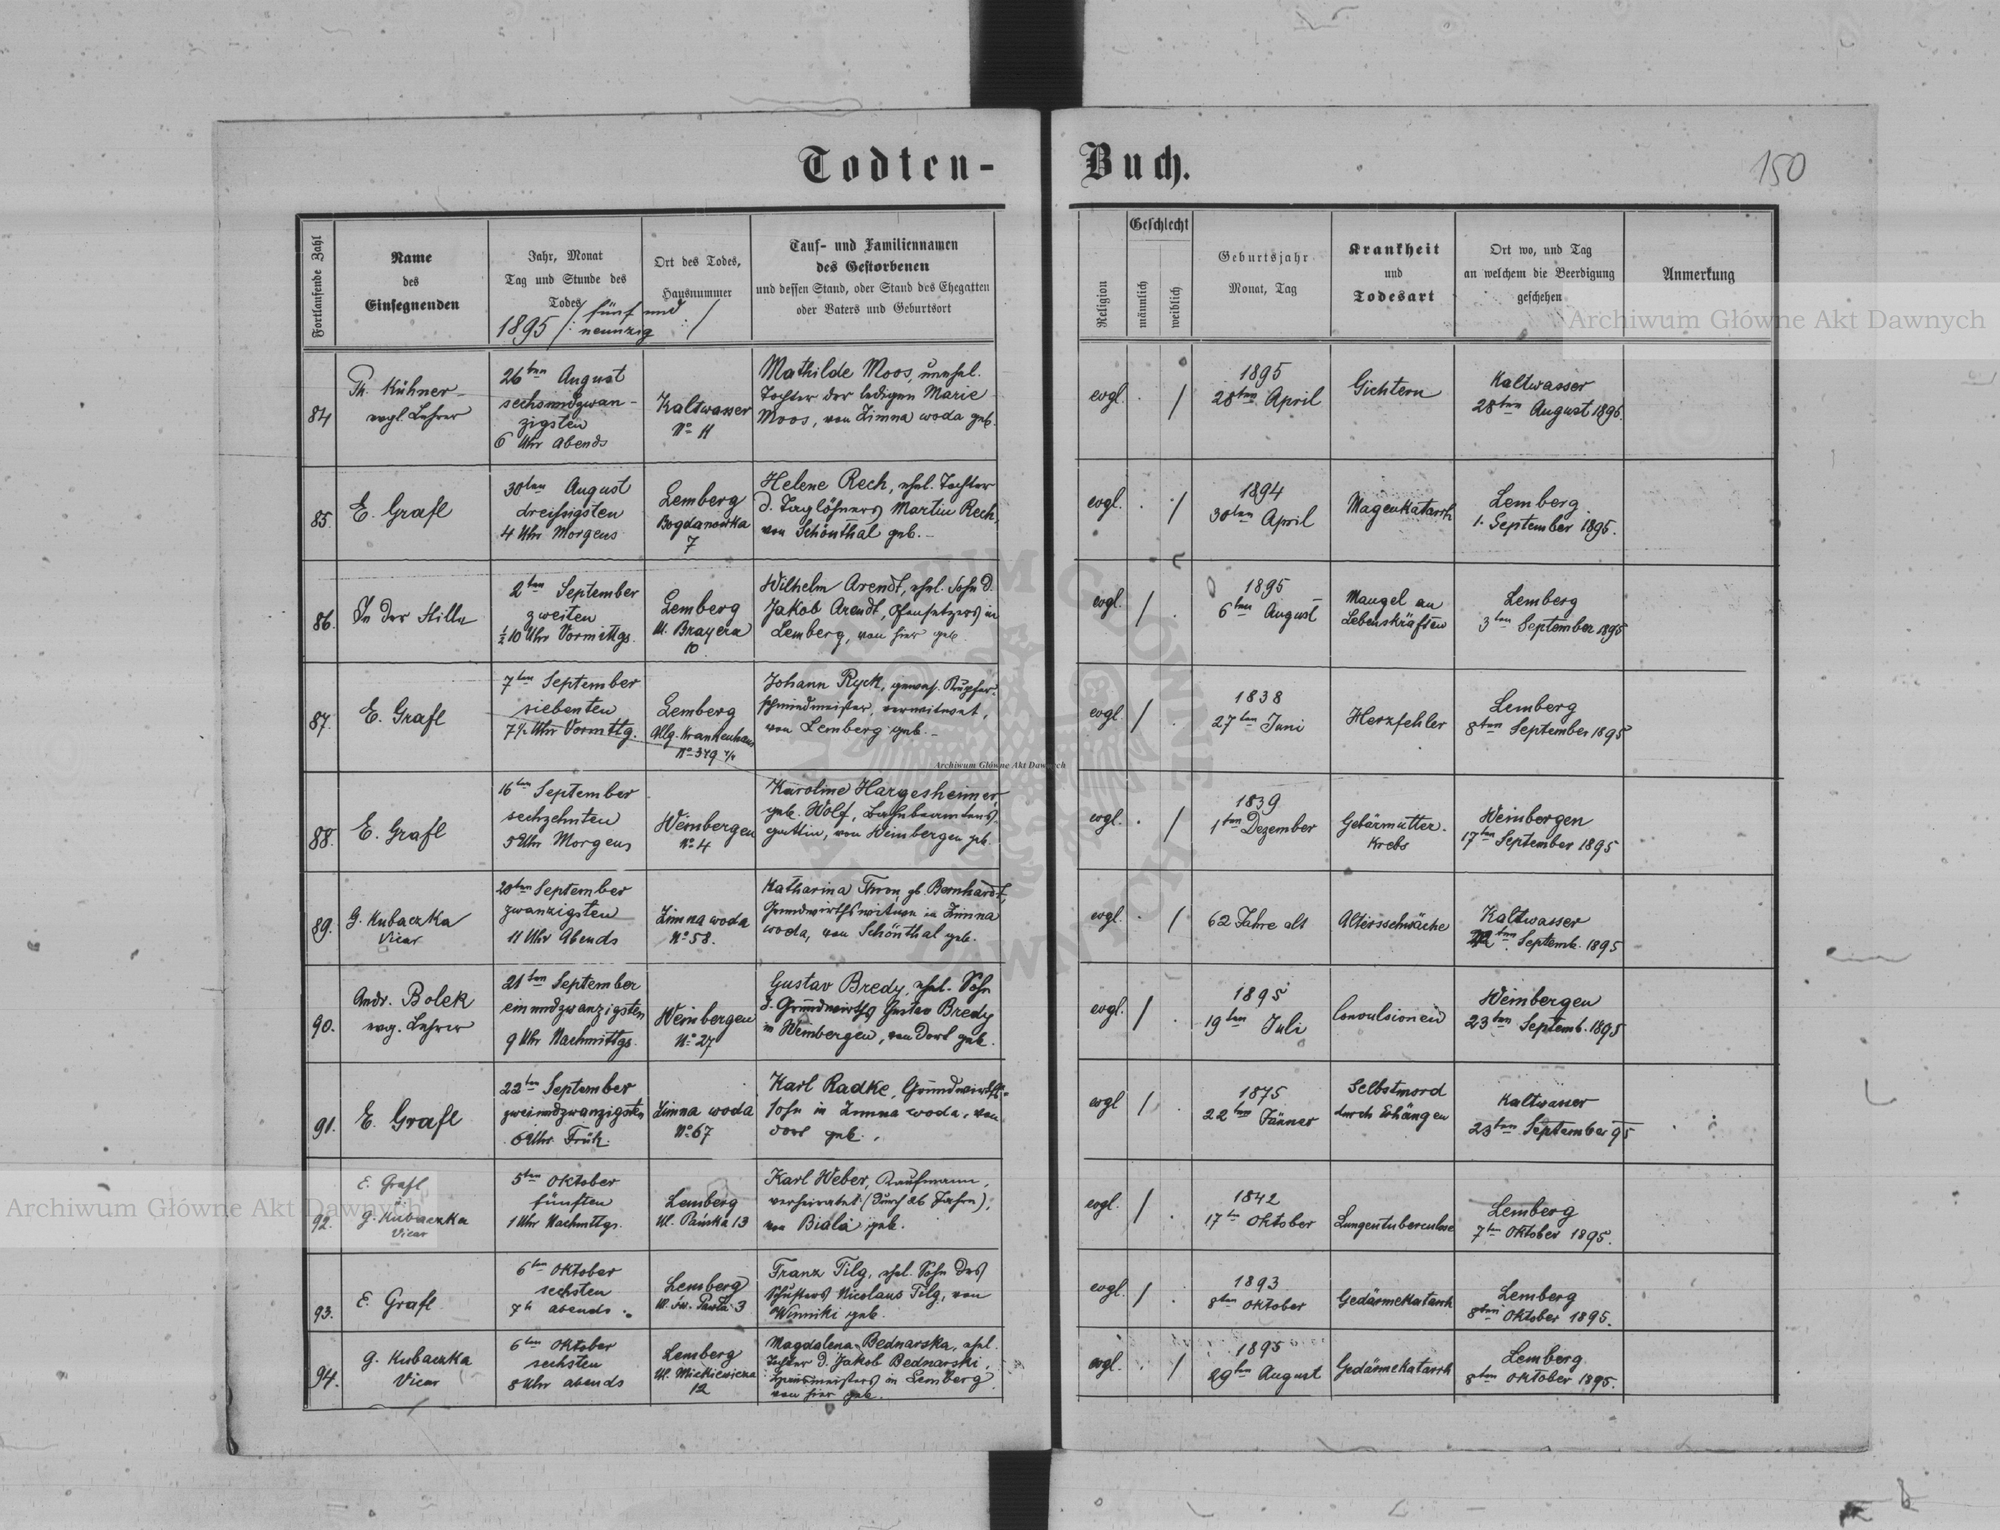 Todten-
Buch.
150
Fortlaufende Zahl
Name
des
Einsegnenden
Jahr, Monat
Tag und Stunde des
Todes
1895 /: fünf und
neunzig :/
Ort des Todes,
Hausnummer
Tauf- und Familiennamen
des Gestorbenen
und dessen Stand, oder Stand des Ehegatten
oder Vaters und Geburtsort
Religion
Geschlecht
männlich
weiblich
Geburtsjahr
Monat, Tag
Krankheit
und
Todesart
Ort wo, und Tag
an welchem die Beerdigung
geschehen
Anmerkung
84
Th. Kühner
evgl. Lehrer
26ten August
sechsundzwan-
zigsten
6 Uhr Abends
Kaltwasser
No 11
Mathilde Moos, unehel.
Tochter der ledigen Marie
Moos, von Zimna woda geb.
evgl.
/
1895
28ten April
Gichtern
Kaltwasser
28ten August 1895.
85.
E. Grafl
30ten August
dreißigsten
4 Uhr Morgens
Lemberg
Bogdanowka
7
Helene Rech, ehel. Tochter
d. Taglöhners Martin Rech,
von Schönthal geb.
evgl.
/
1894
30ten April
Magenkatarrh
Lemberg.
1. September 1895.
86.
In der Stille
2ten September
zweiten
½10 Uhr Vormittgs.
Lemberg
Ul. Brayera
10.
Wilhelm Arendt, ehel. Sohn d.
Jakob Arendt, Ofensetzers in
Lemberg, von hier geb.
evgl.
/
1895
6ten August
Mangel an
Lebenskräften
Lemberg
3ten September 1895
87.
E. Grafl
7ten September
siebenten
7½ Uhr Vormttg.
Lemberg
Allg. Krankenhaus
No 379 4/4
Johann Ryck, gewes. Kupfer-
schmiedmeister, verwitwet,
von Lemberg geb.
evgl.
/
1838
27ten Juni
Herzfehler
Lemberg
8ten September 1895
88.
E. Grafl
16ten September
sechzehnten
5 Uhr Morgens
Weinbergen
No. 4
Karoline Hargesheimer,
geb. Wolf, Bahnbeamtens-
gattin, von Weinbergen geb.
evgl.
/
1839
1ten Dezember
Gebärmutter-
Krebs
Weinbergen
17ten September 1895
89.
G. Kubaczka
Vicar
20ten September
zwanzigsten
11 Uhr Abends
Zimna woda
No 58.
Katharina Thron gb. Bernhardt,
Grundwirthswitwe in Zimna
woda, von Schönthal geb.
evgl.
/
62 Jahre alt
Altersschwäche
Kaltwasser
22ten Septemb. 1895
90.
Andr. Bolek
evg. Lehrer
21ten September
einundzwanzigsten
9 Uhr Nachmittgs.
Weinbergen
No. 27
Gustav Bredy, ehel. Sohn
d. Grundwirths Gustav Bredy
in Weinbergen, von dort geb.
evgl.
/
1895
19ten Juli
Convulsionen
Weinbergen
23ten Septemb. 1895
91.
E. Grafl
22ten September
zweiundzwanzigsten
6 Uhr Früh.
Zimna woda
No. 67
Karl Radke, Grundwirths-
sohn in Zimna woda, von
dort geb.
evgl
/
1875
22ten Jänner
Selbstmord
durch Erhängen
Kaltwasser
23ten September 95
92.
E. Grafl
G. Kubaczka
Vicar
5ten Oktober
fünften
1 Uhr Nachmttgs.
Lemberg
Ul. Pańska 13
Karl Weber, Kaufmann,
verheiratet (durch 26 Jahre),
von Biala geb.
evgl.
/
1842
17ten Oktober
Lungentuberculose
Lemberg
7ten Oktober 1895.
93.
E. Grafl
6ten Oktober
sechsten
7 h abends
Lemberg
Ul. św. Pawła 3
Franz Tilg, ehel. Sohn des
Schusters Nicolaus Tilg, von
Winniki geb.
evgl.
/
1893
8ten Oktober
Gedärmekatarrh
Lemberg
8ten Oktober 1895.
94.
G. Kubaczka
Vicar
6ten Oktober
sechsten
8 Uhr abends
Lemberg
Ul. Mickiewicza
12
Magdalena Bednarska, ehel.
Tochter d. Jakob Bednarski,
in Lemberg
von hier geb.
evgl.
/
1895
29ten August
Gedärmekatarrh
Lemberg
8ten Oktober 1895.
Archiwum Główne Akt Dawnych
Archiwum Główne Akt Dawnych
Archiwum Główne Akt Dawnych